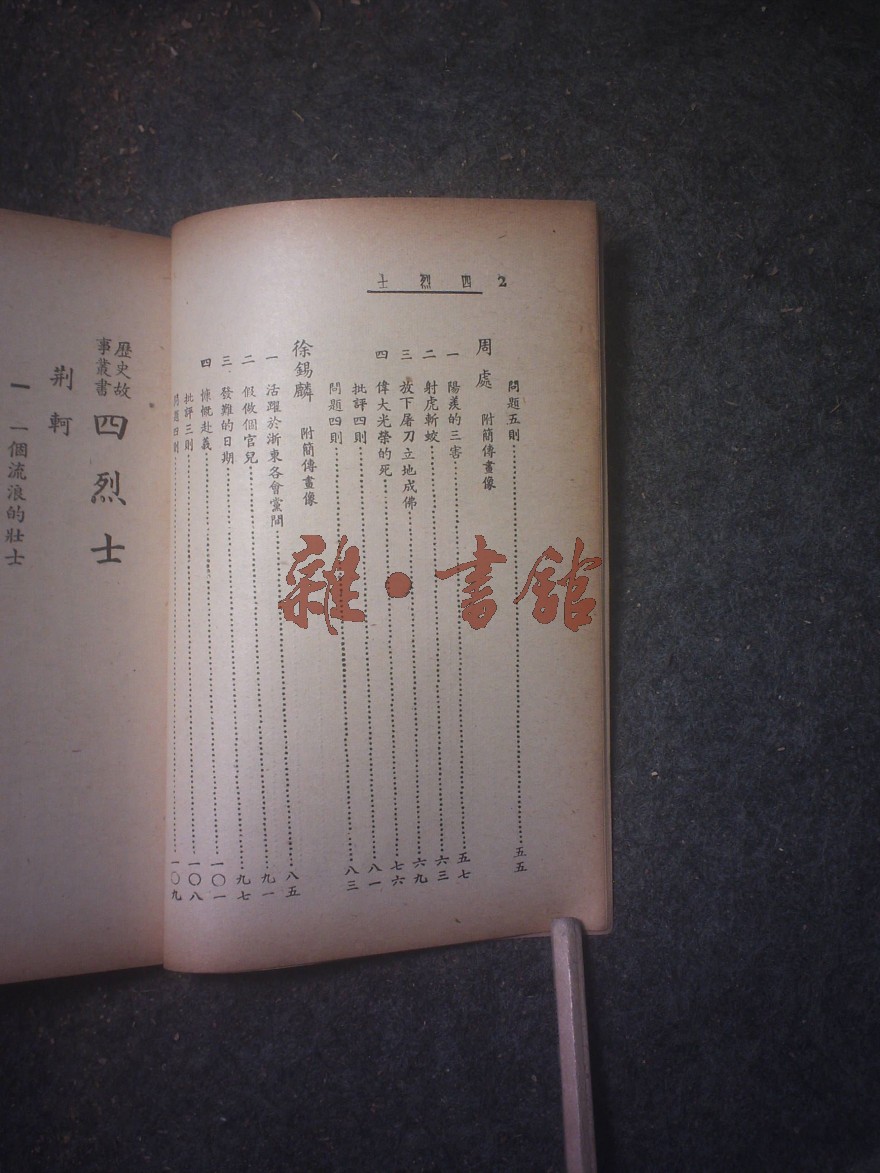 2 四烈士
問題五則 五五
周處 附簡傳畫像
一 陽羨的三害 五七
二 射虎斬蛟 六三
三 放下屠刀立地成佛 六九
四 偉大光榮的死 七六
批評四則 八一
問題四則 八三
徐錫麟 附簡傳畫像
一 活躍於浙東各會黨間 八五
二 假做個官兒 九一
三 發難的日期 九七
四 慷慨赴義 一〇一
批評三則 一〇八
問題四則 一〇九
歷史故事叢書 四烈士
荆軻
一 一個流浪的壯士
雜·書館